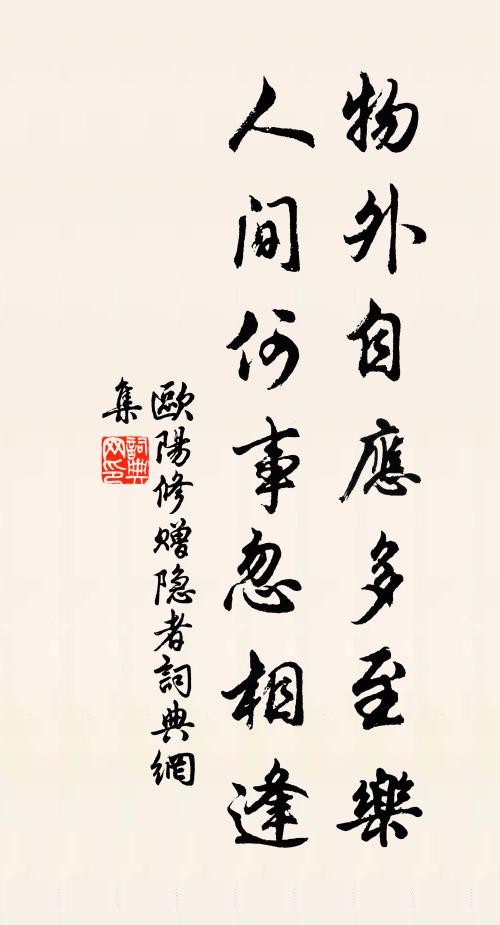 物外自應多至樂
人间何事忽相逢
歐陽修赠隐者詞典網
集
詞典網印